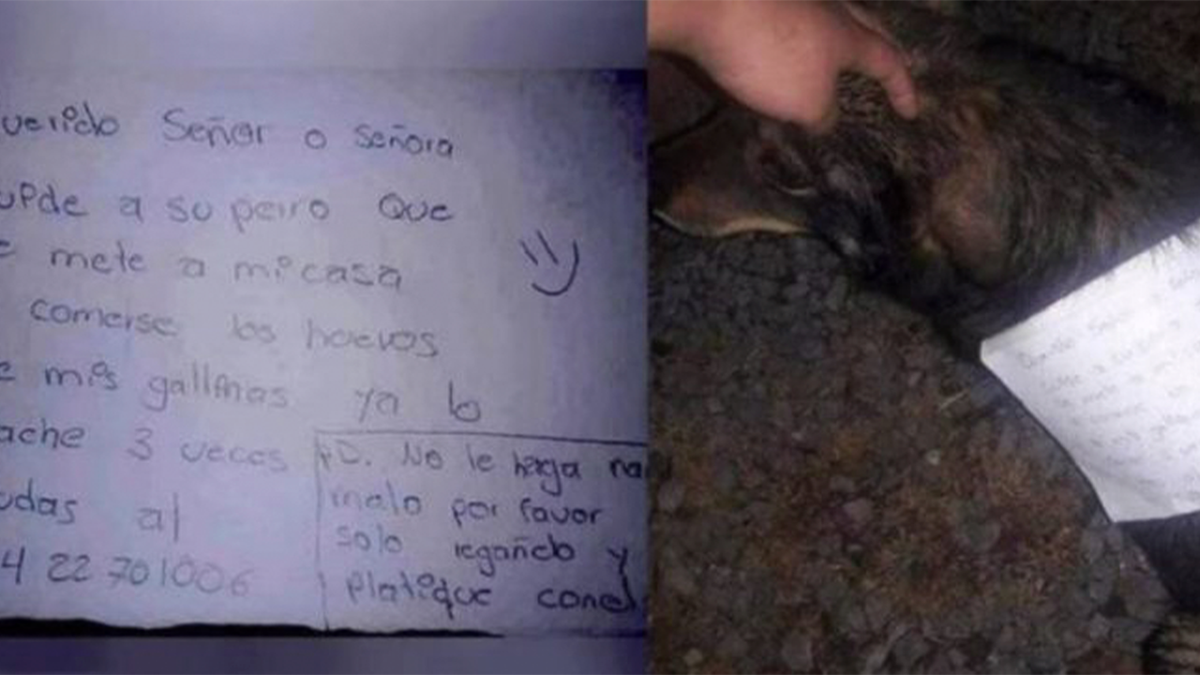 uerido Señor o señora
upde a su perro que
e mete a mi casa
comerse los huevos
e mis gallinas ya lo
ache 3 veces
udas al
4 22 701006
PD. No le haga na
malo por favor
solo regañelo y
platique conel